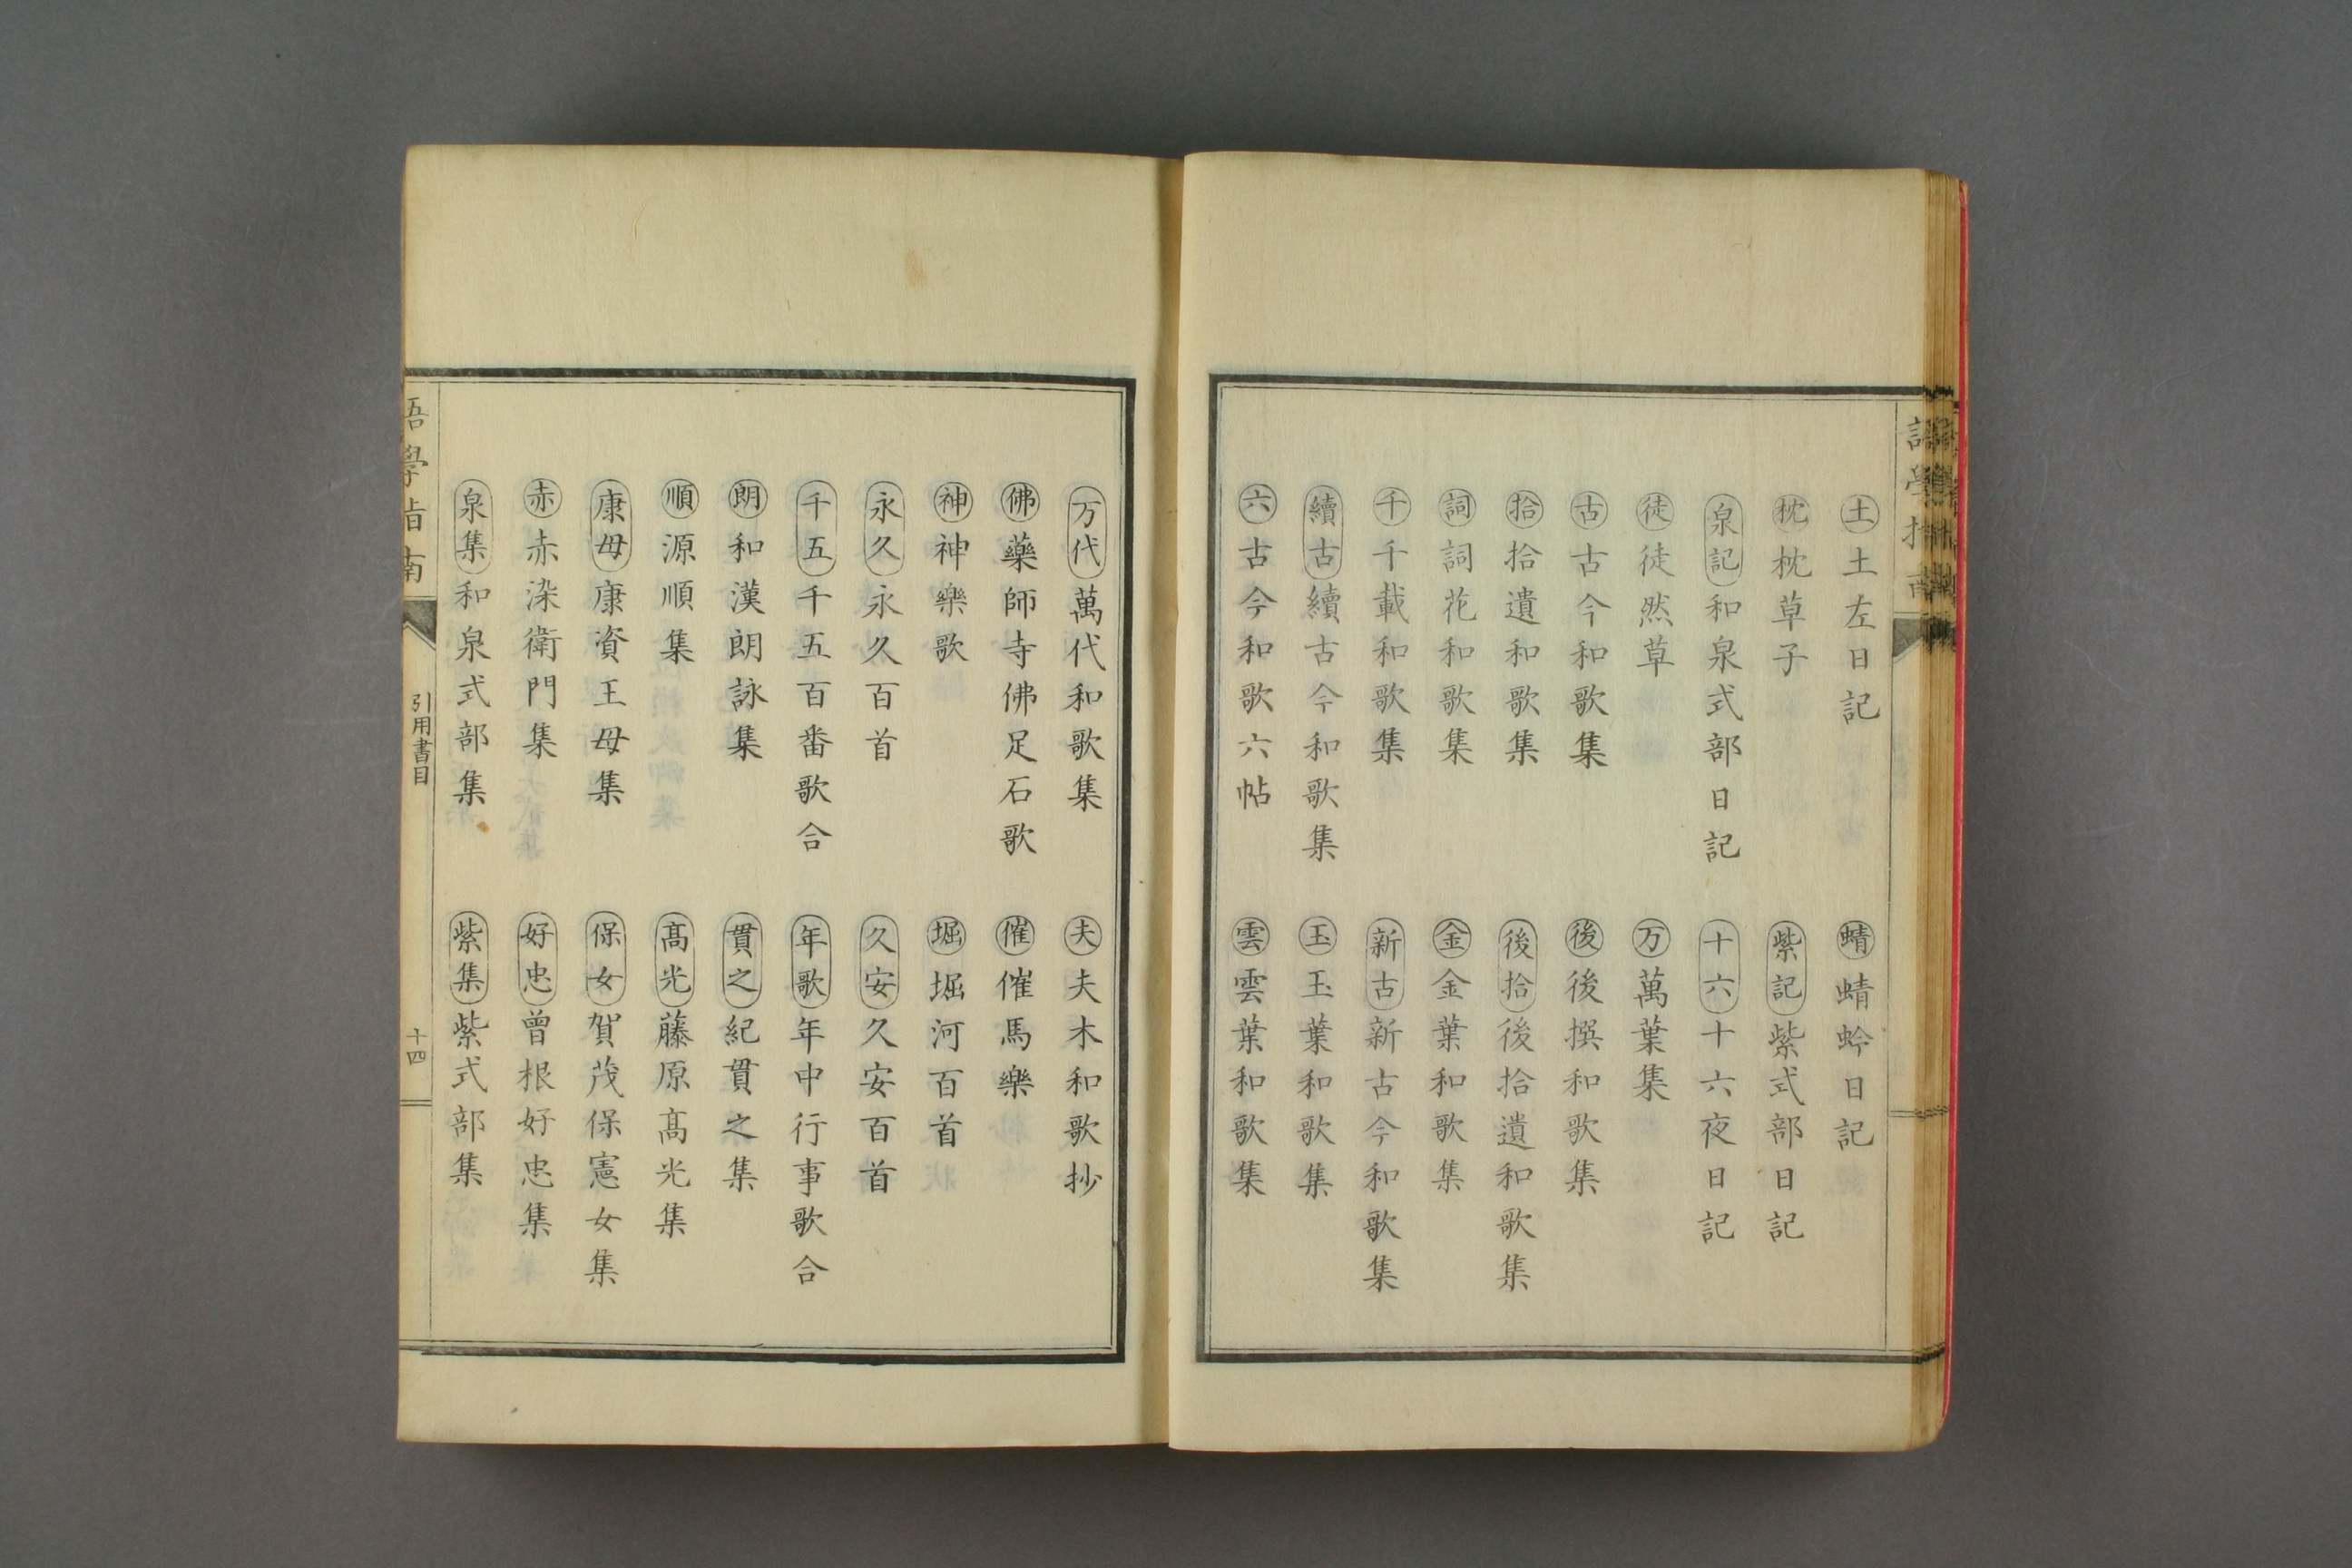 土 土左日記
蜻 蜻蛉日記
枕 枕草子
紫記 紫式部日記
泉記 和泉式部日記
十六 十六夜日記
徒 徒然草
万 萬葉集
古 古今和歌集
後 後撰和歌集
拾 拾遺和歌集
後拾 後拾遺和歌集
詞 詞花和歌集
金 金葉和歌集
千 千載和歌集
新古 新古今和歌集
續古 續古今和歌集
玉 玉葉和歌集
六 古今和歌六帖
雲 雲葉和歌集
万代 萬代和歌集
夫 夫木和歌抄
佛 藥師寺佛足石歌
催 催馬樂
神 神樂歌
堀 堀河百首
永久 永久百首
久安 久安百首
千五 千五百番歌合
年歌 年中行事歌合
朗 和漢朗詠集
貫之 紀貫之集
順 源順集
高光 藤原高光集
康母 康資王母集
保女 賀茂保憲女集
赤 赤染衛門集
好忠 曾根好忠集
泉集 和泉式部集
紫集 紫式部集
語學指南
引用書目
十四